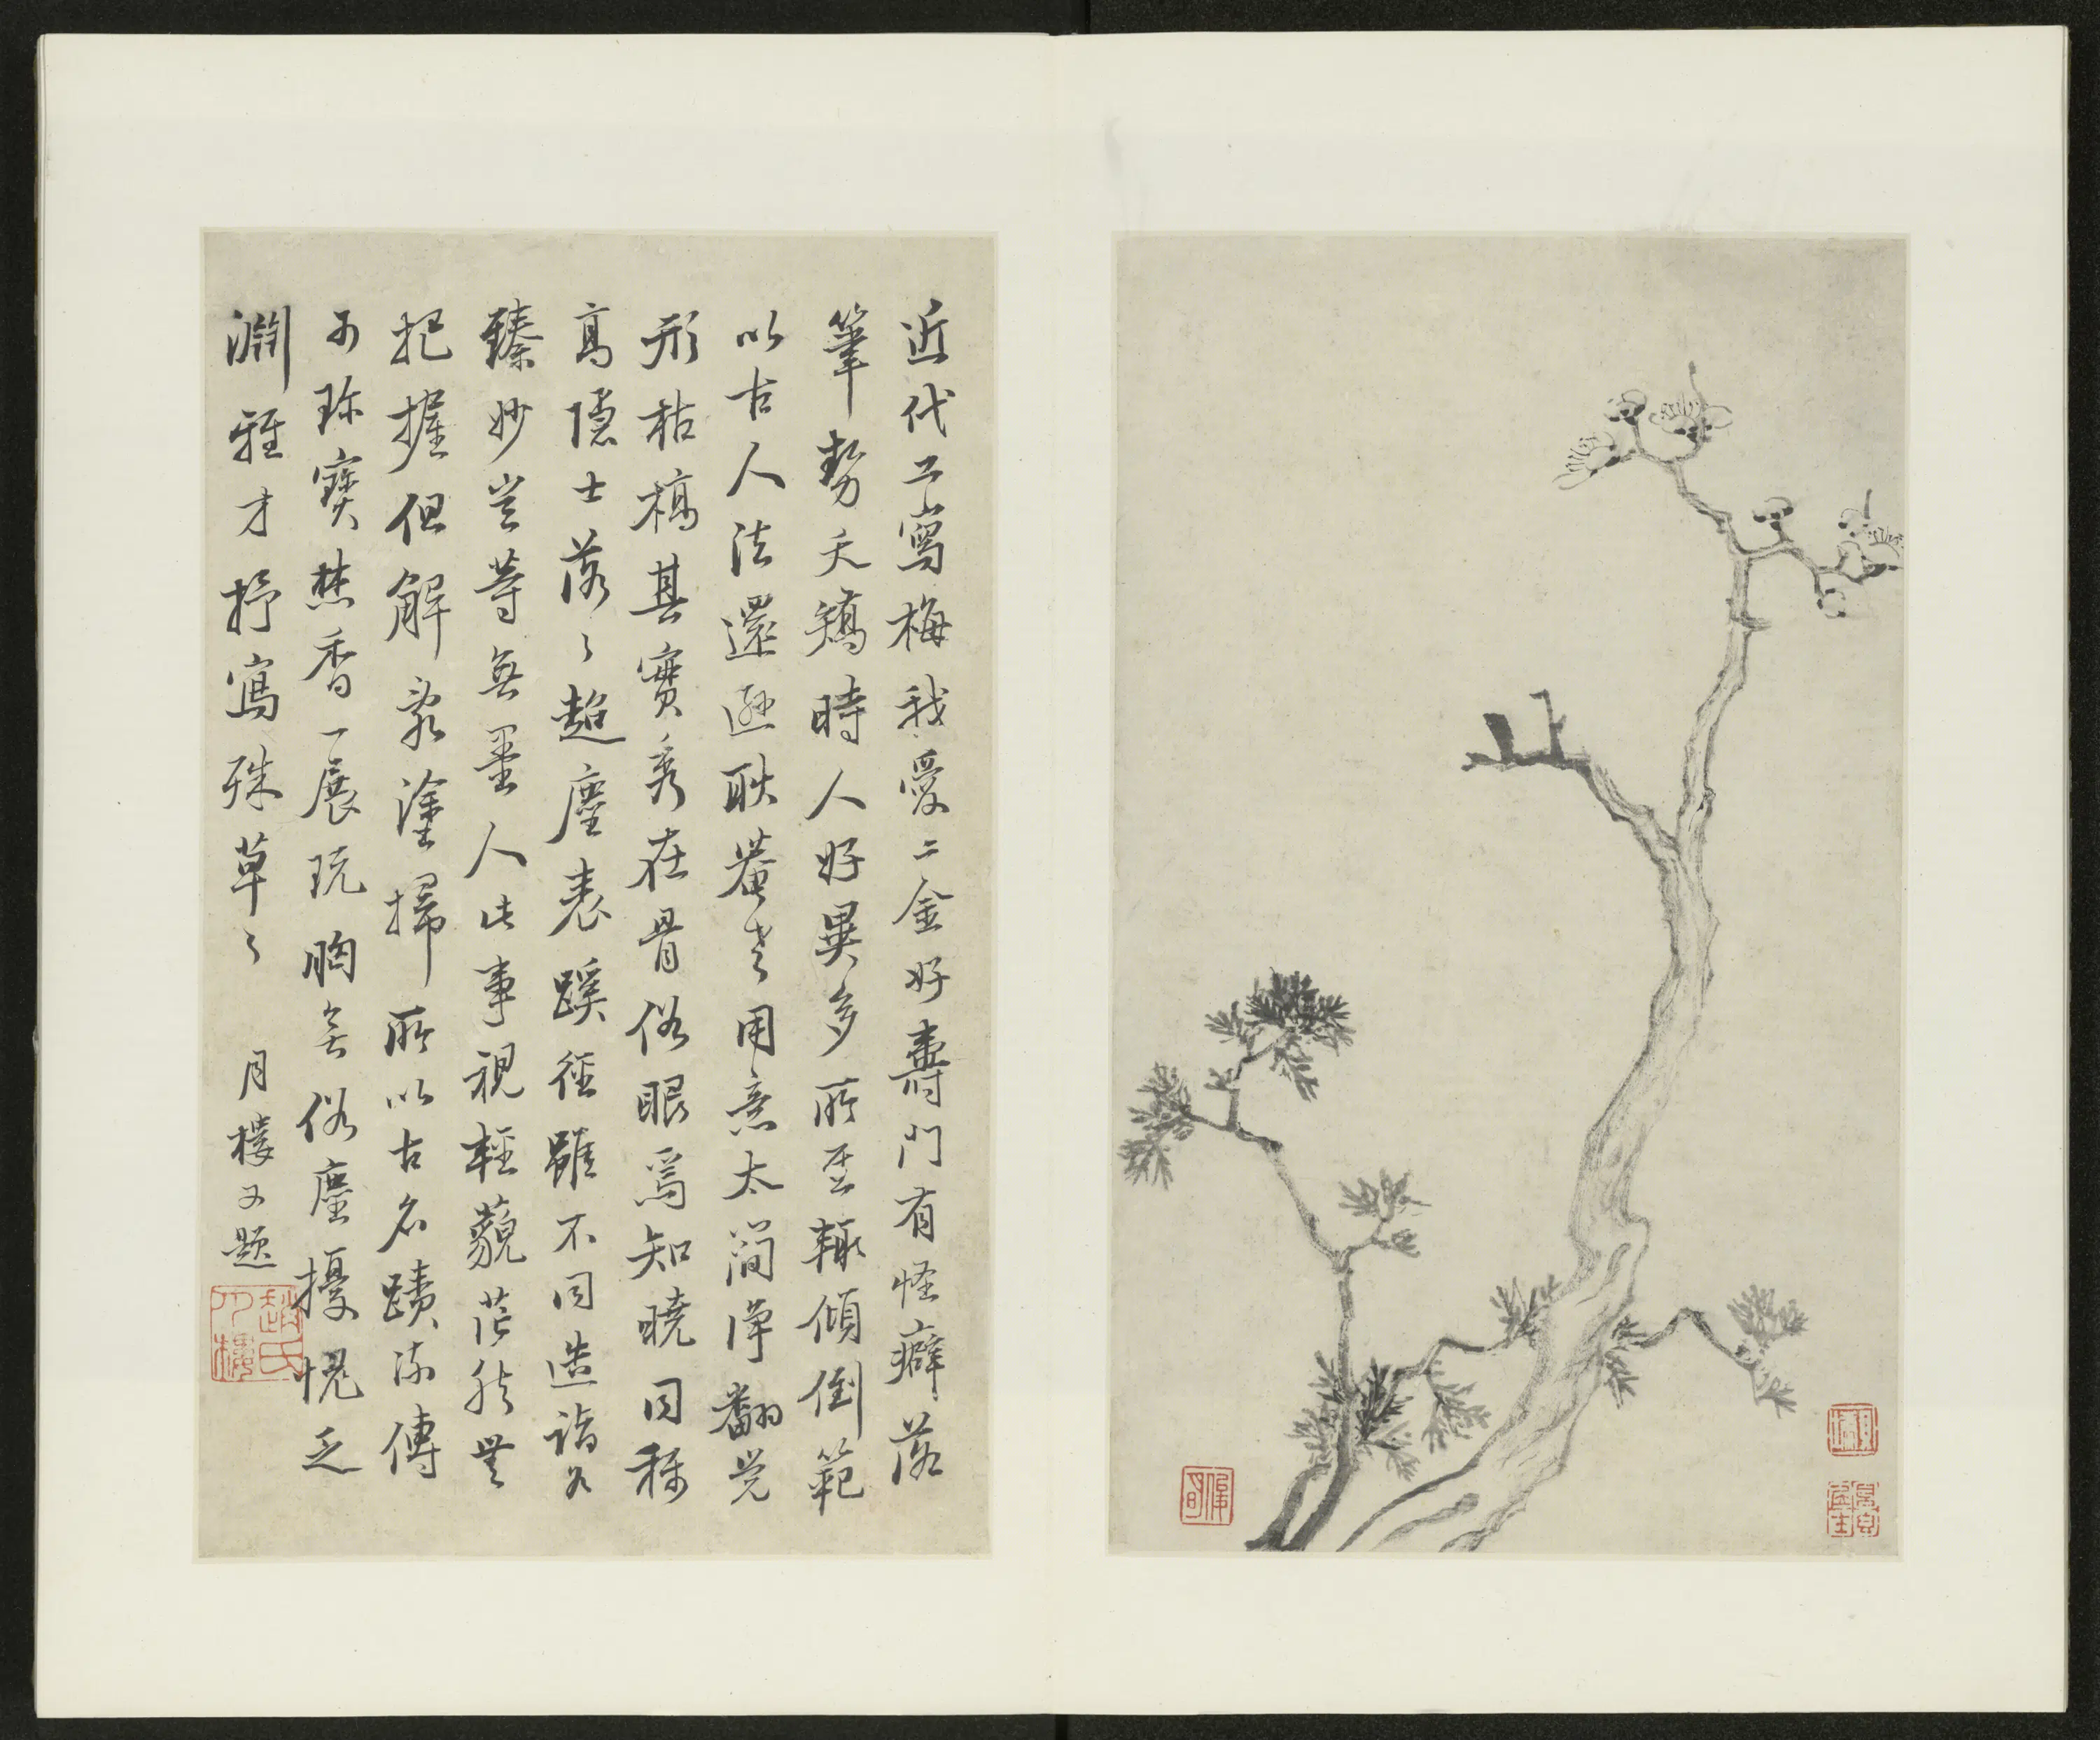 近代工寫梅我愛二金好壽門有怪癖落
筆勢夭矯時人好異多所至輒傾倒範
以古人法還遜耿菴老用意太簡淨翻覺
形枯槁其實秀在骨俗眼焉知曉同稱
高隱士落〻超塵表蹊徑雖不同造詣各
臻妙豈等無墨人此事視輕藐茫然無
把握但解家塗掃所以古名蹟流傳
可珍寶焚香一展玩胸無俗塵擾愧乏
淵雅才抒寫殊草〻 月樓又題
趙氏月樓